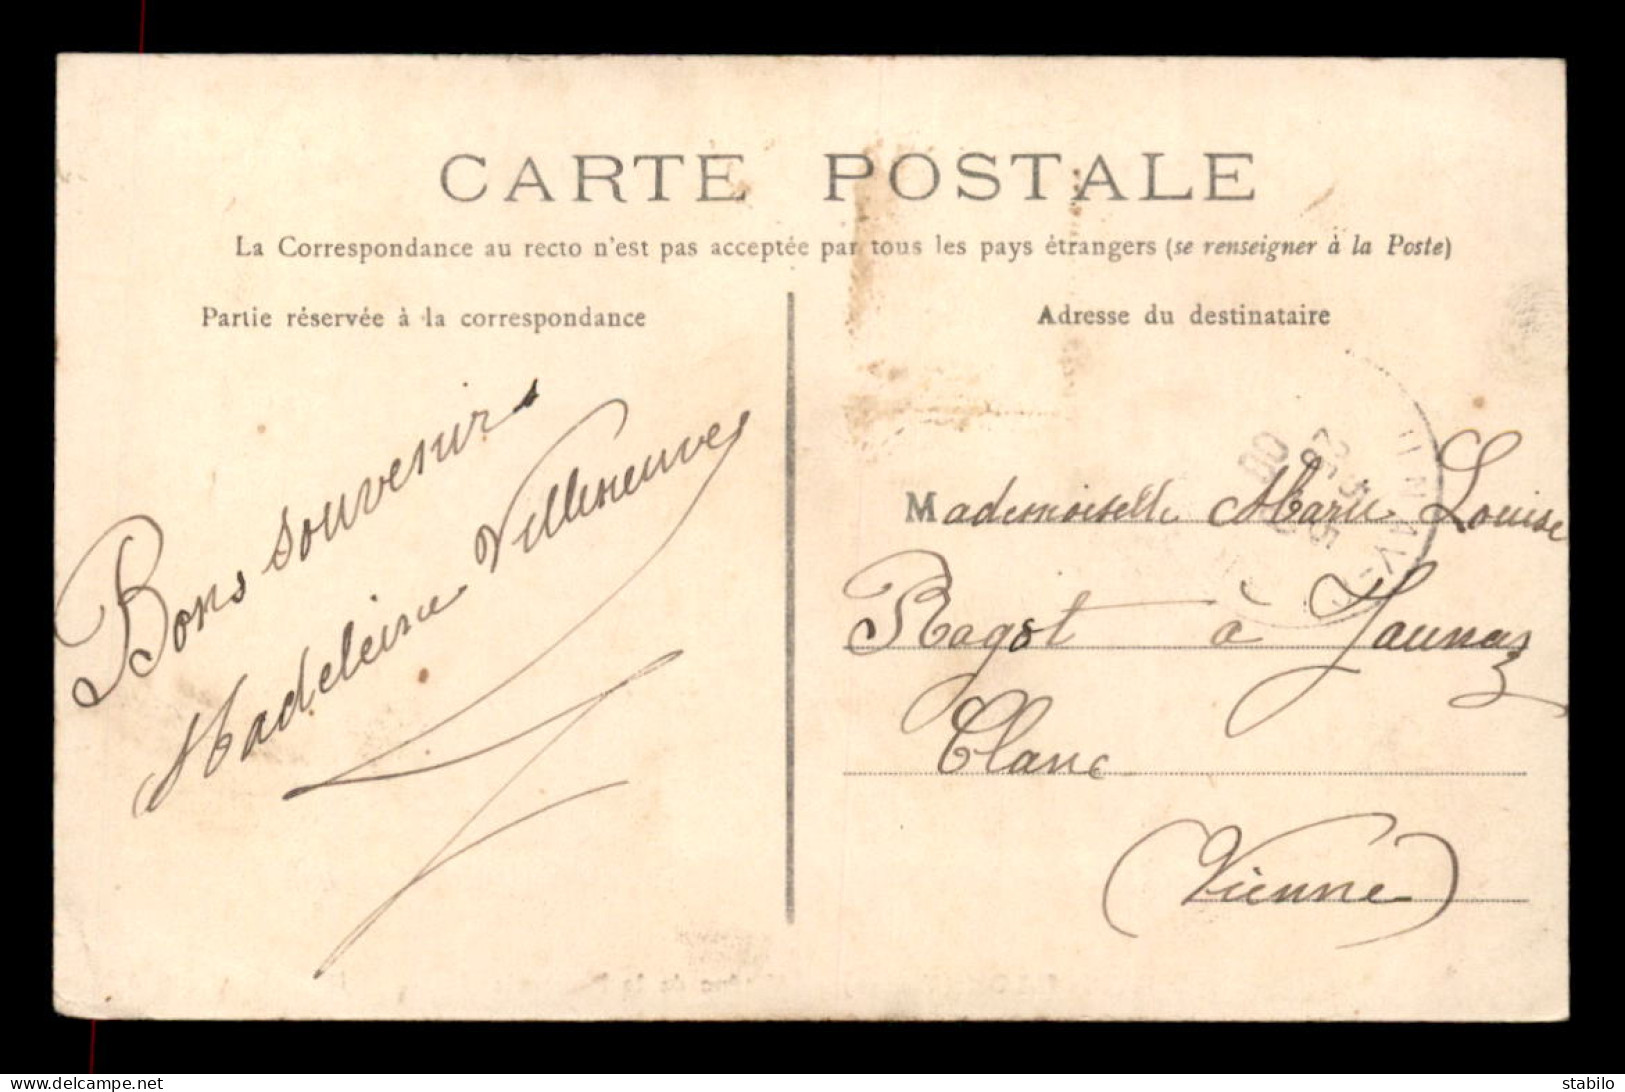 CARTE POSTALE
La Correspondance au recto n'est pas acceptée par tous les pays étrangers (se renseigner à la Poste)
Partie réservée à la correspondance
Bons souvenirs
Madeleine Villeneuve
Adresse du destinataire
Mademoiselle Marie Louise
Ragot à Jaunay
Clanc
(Vienne)
delcampe.net
stabilo